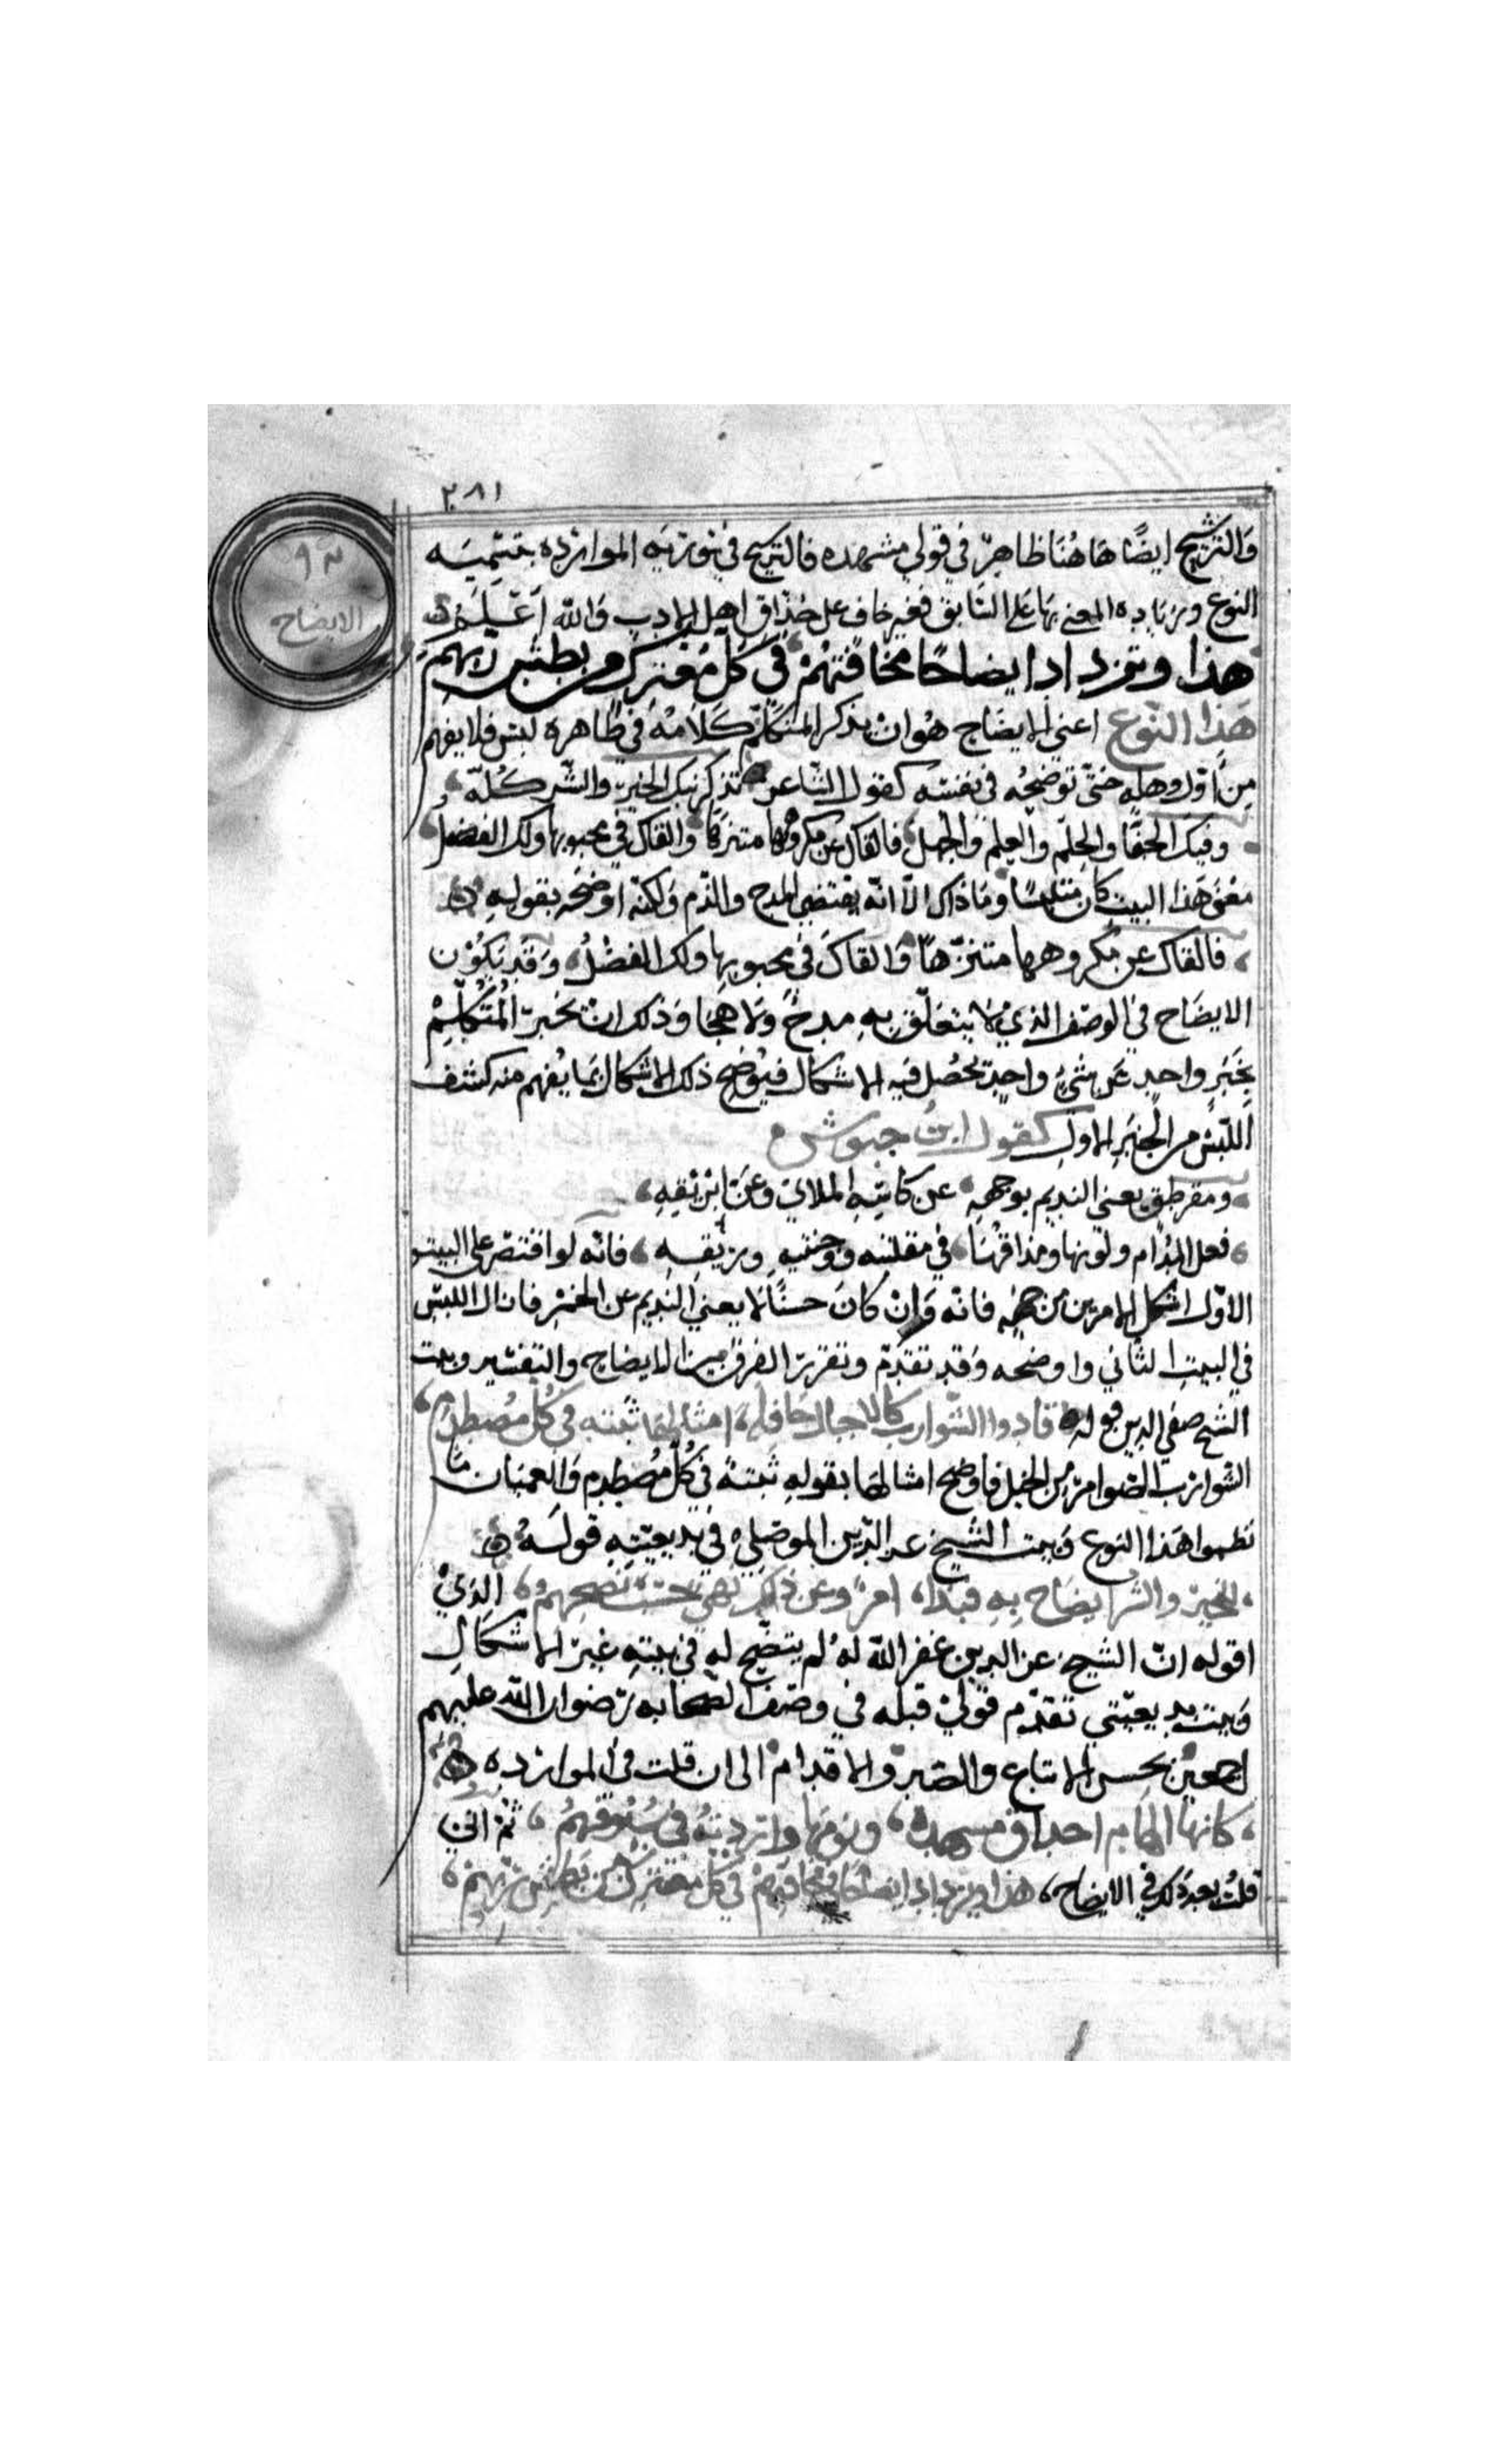 ٢٨١
٩٣
الايضاح
والترشيح ايضًا هاهُنا ظاهر في قولي مشهده فالترشيح في تورية المواردة بتسمية
النوع وزيادة المعنى بها على السابق فغير خاف على حُذّاق اهل الادب والله أعلم
هذا وتزداد ايضاحًا مخافتهم في كل معترك من بطش ربهم
هذا النوع اعني الايضاح هو ان يذكر المتكلم كلامًا في ظاهره لبس فلا يفهم
من اول وهله حتى توضحه في نفسه كقول الشاعر تذكرنيك الخير والشر كله
وفيك الحفا والحلم والعلم والجهل فالقاك عن مكروهها متنزها والقاك في محبوبها ولك الفضل
معنى هذا البيت كان ملتبسًا وما ذاك الا انه يقتضي المدح والذم ولكنه اوضحه بقوله
فالقاك عن مكروهها متنزّهًا والقاك في محبوبها ولك الفضلُ وقد يكون
الايضاح في الوصف الذي لا يتعلق به مدح ولا هجا وذلك ان يخبر المُتكلّم
بخبر واحد عن شيء واحد يحصُل فيه الاشكال فيوضح ذلك الاشكال بما يفهم منه كشف
اللبس من الخبر الاول كقول ابن حيوش
ومقرطق يغني النديم بوجهه عن كاسه الملاي وعن ابريقه
فعل المدام ولونها ومذاقها في مقلتيه ووجنتيه وريقه فانه لو اقتصر على البيت
الاول اشكل الامر من جهة فانه وان كان حسنًا لا يغني النديم عن الخمر فازال اللبس
في البيت الثاني واوضحه وقد تقدم وتقرر الفرق بين الايضاح والتفسير وبيت
الشيخ صفي الدين قوله قادوا الشوازب كالاجبال حافله امثالها ثبته في كُل مُصطدم
الشوازب الضوامر من الخيل فاوضح امثالها بقوله ثبتة في كل مُصطدم والعميان ما
نظموا هذا النوع وبيت الشيخ عز الدين الموصلي في بديعيته قوله
للخير والشر ايضاح به فبدا امر وعن ذاك نهي حسب نصحهم الذي
اقوله ان الشيخ عز الدين غفر الله له لم يتضح له في بيته غير الاشكال
وبيت بديعيتي تقدم قولي قبله في وصف الصحابه رضوان الله عليهم
اجمعين بحسن الاتباع والصبر والاقدام الى ان قلت في المواردة
كانما الهام احداق مسهدة ونومها واردته في سيوفهم ثم اني
قلت بعد ذلك في الايضاح هذا ويزداد ايضاحًا مخافتهم في كل معترك من بطش ربهم